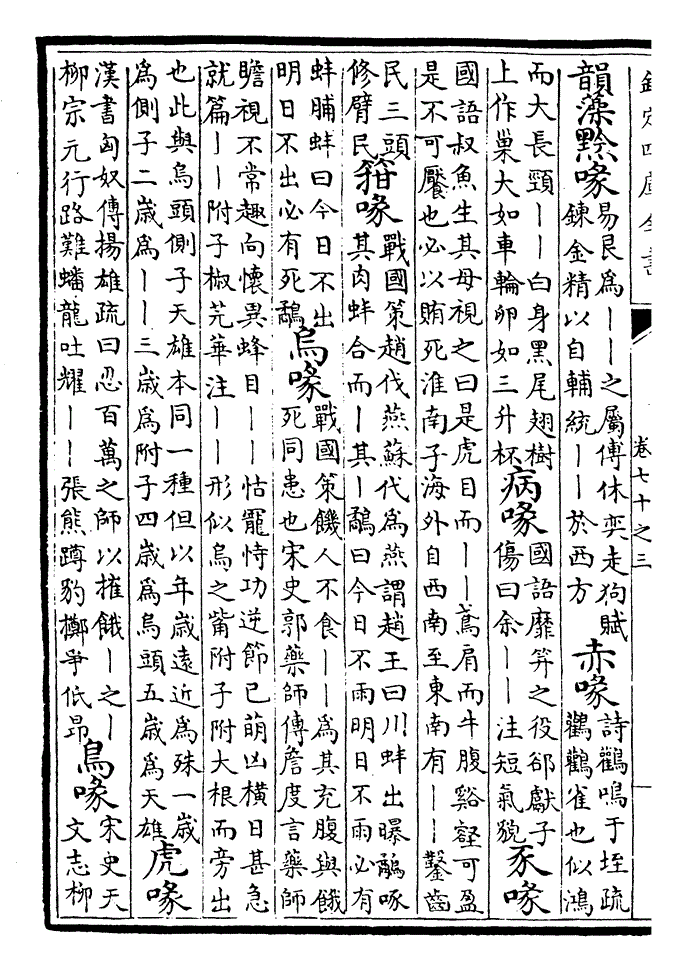 欽定四庫全書 卷七十之三
韻藻黔喙
易艮爲丨丨之屬傅休奕走狗賦
鍊金精以自輔統丨丨於西方
赤喙
詩鸛鳴于垤疏
鸛鸛雀也似鴻
而大長頸丨丨白身黑尾翅樹
上作巢大如車輪卵如三升杯
病喙
國語靡筓之役郤獻子
傷曰余丨丨注短氣貌
豕喙
國語叔魚生其母視之曰是虎目而丨丨鳶肩而牛腹谿壑可盈
是不可饜也必以賄死淮南子海外自西南至東南有丨丨鑿齒
民三頭
修臂民
箝喙
戰國策趙伐燕蘇代爲燕謂趙王曰川蚌出曝鷸啄
其肉蚌合而丨其丨鷸曰今日不雨明日不雨必有
蚌脯蚌曰今日不出
明日不出必有死鷸
烏喙
戰國策饑人不食丨丨爲其充腹與餓
死同患也宋史郭藥師傳詹度言藥師
瞻視不常趣向懷異蜂目丨丨怙寵恃功逆節已萌凶橫日甚急
就篇丨丨附子椒芫華注丨丨形似烏之觜附子附大根而旁出
也此與烏頭側子天雄本同一種但以年歲遠近爲殊一歲
爲側子二歲爲丨丨三歲爲附子四歲爲烏頭五歲爲天雄
虎喙
漢書匈奴傳揚雄疏曰忍百萬之師以摧餓丨之丨
柳宗元行路難蟠龍吐耀丨丨張熊蹲豹擲爭低昂
鳥喙
宋史天
文志柳